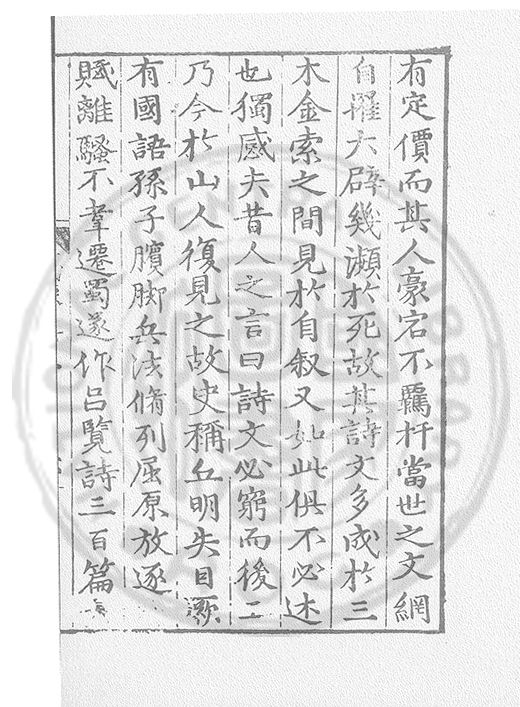 有定價而其人豪宕不羈扞當世之文網
自罹大辟幾瀕於死故其詩文多成於三
木金索之間見於自叙又如此俱不必述
也獨感夫昔人之言曰詩文必窮而後工
乃今於山人復見之故史稱丘明失目厥
有國語孫子臏脚兵法脩列屈原放逐
賦離騷不韋遷蜀遂作呂覽詩三百篇